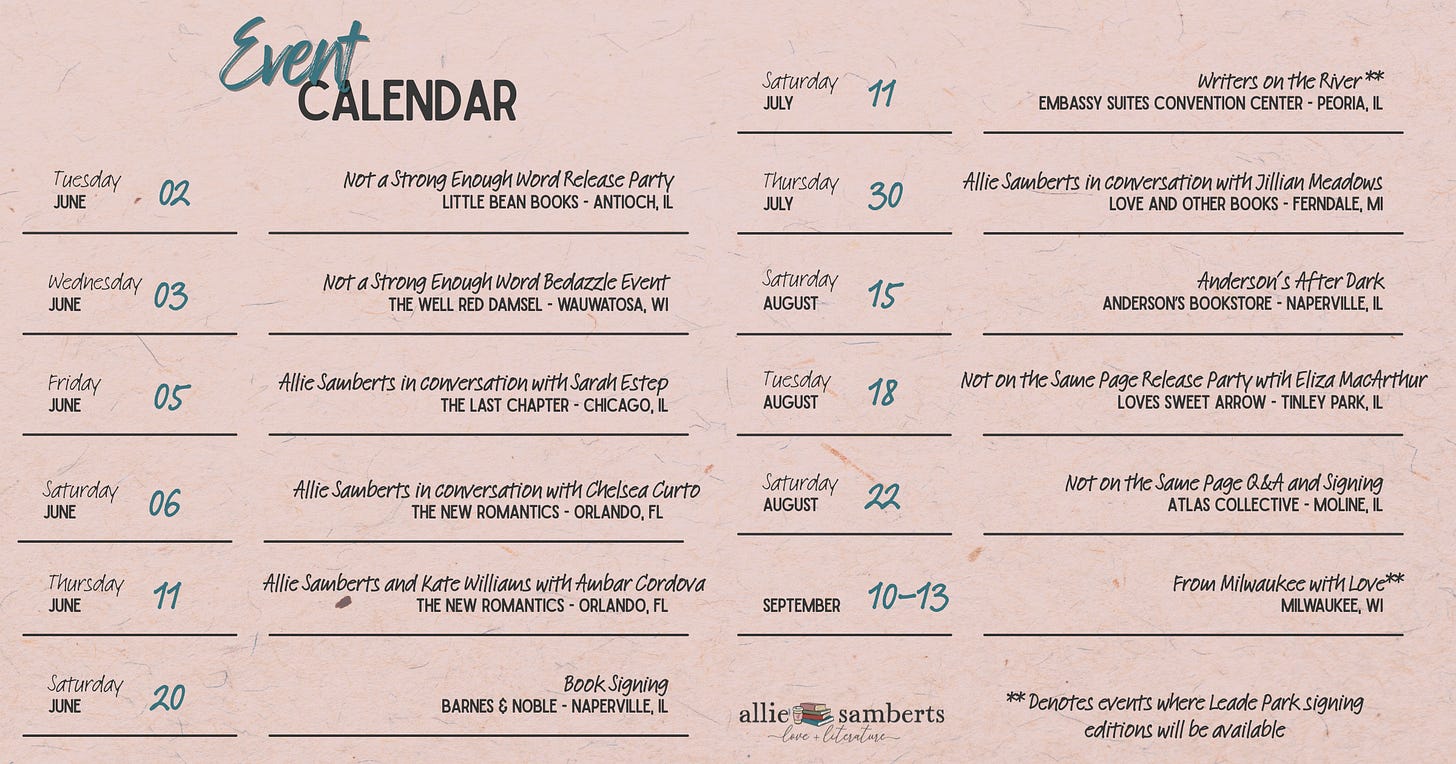 Event
CALENDAR
Tuesday
JUNE
02
Not a Strong Enough Word Release Party
LITTLE BEAN BOOKS - ANTIOCH, IL
Wednesday
JUNE
03
Not a Strong Enough Word Bedazzle Event
THE WELL RED DAMSEL - WAUWATOSA, WI
Friday
JUNE
05
Allie Samberts in conversation with Sarah Estep
THE LAST CHAPTER - CHICAGO, IL
Saturday
JUNE
06
Allie Samberts in conversation with Chelsea Curto
THE NEW ROMANTICS - ORLANDO, FL
Thursday
JUNE
11
Allie Samberts and Kate Williams with Ambar Cordova
THE NEW ROMANTICS - ORLANDO, FL
Saturday
JUNE
20
Book Signing
BARNES & NOBLE - NAPERVILLE, IL
Saturday
JULY
11
Writers on the River**
EMBASSY SUITES CONVENTION CENTER - PEORIA, IL
Thursday
JULY
30
Allie Samberts in conversation with Jillian Meadows
LOVE AND OTHER BOOKS - FERNDALE, MI
Saturday
AUGUST
15
Anderson's After Dark
ANDERSON'S BOOKSTORE - NAPERVILLE, IL
Tuesday
AUGUST
18
Not on the Same Page Release Party wtih Eliza MacArthur
LOVES SWEET ARROW - TINLEY PARK, IL
Saturday
AUGUST
22
Not on the Same Page Q&A and Signing
ATLAS COLLECTIVE - MOLINE, IL
SEPTEMBER
10-13
From Milwaukee with Love**
MILWAUKEE, WI
allie samberts
love + literature
** Denotes events where Leade Park signing
editions will be available